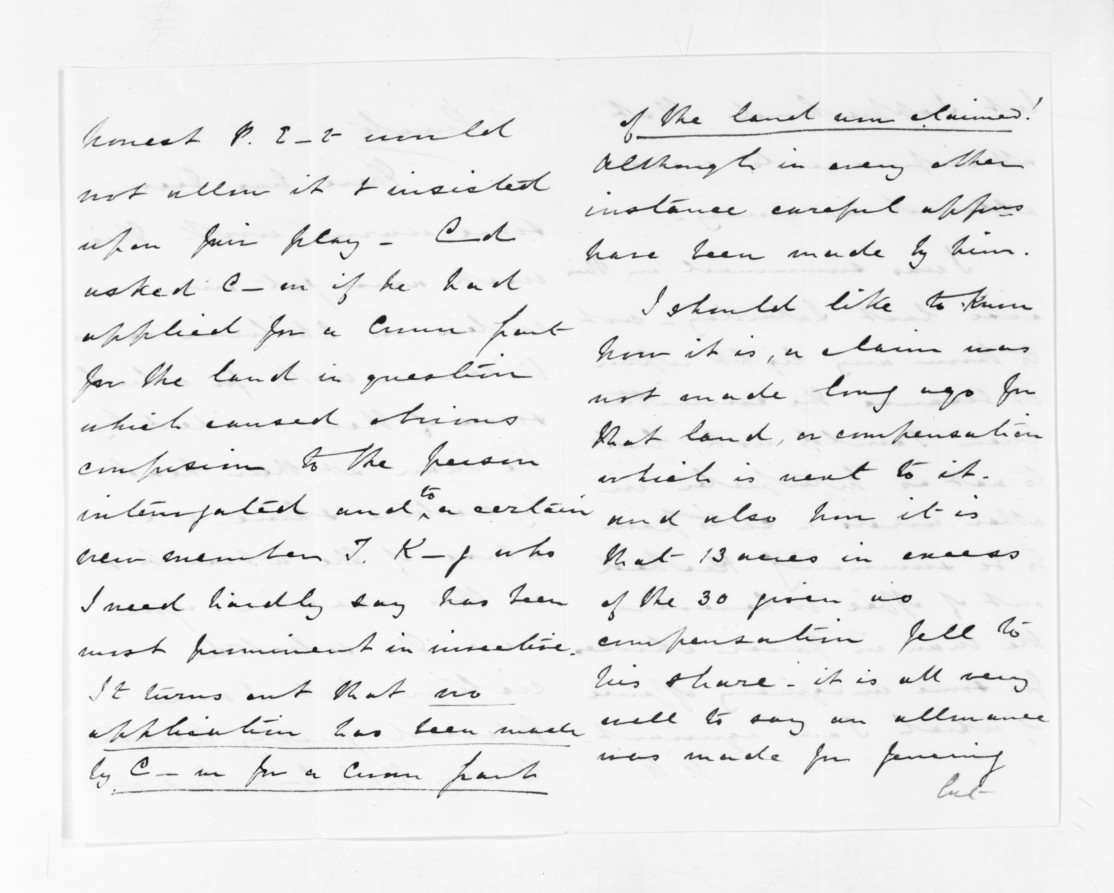 honest P. E–t would
not allow it & insisted
upon fair play – C–d
asked C–n if he had
applied for a Crown grant
for the land in question
which caused obvious
confusion to the person
interrogated and to a certain
new member T. K–g who
I need hardly say has been
most prominent in invective.
It turns out that no
application has been made
by C–n for a Crown grant
of the land now claimed!
Although in every other
instance careful appns
have been made by him.
I should like to know
how it is, a claim was
not made long ago for
that land, or compensation
which is next to it.
and also how it is
that 13 acres in excess
of the 30 given as
compensation fell to
his share – it is all very
well to say an allowance
was made for fencing
but